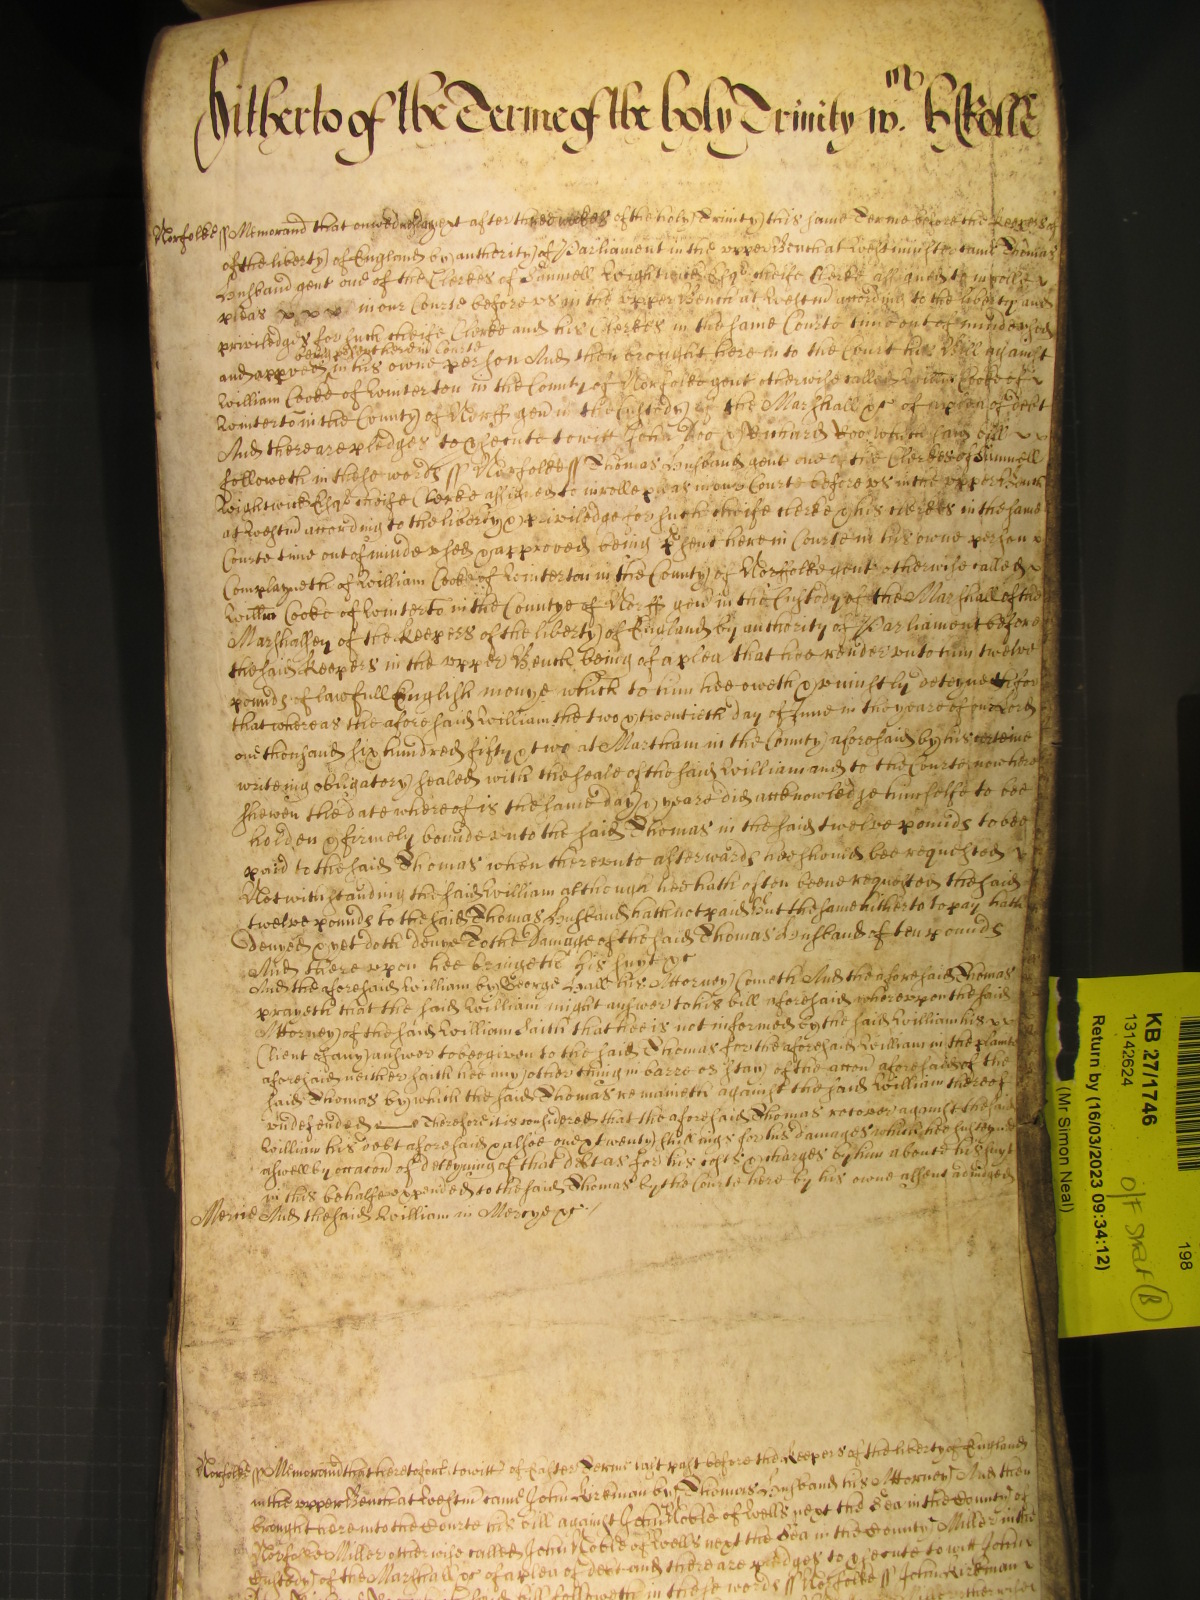 Hitherto of the Terme of the holy Trinity
Norfolke ss Memorand that on wednesday next after three weekes of the holy Trinity this same Terme before the Keepers
of the liberty of England by authority of Parliament in the upper Bench at Westminster came Thomas
Husband gent one of the Clerkes of Samuell Wightwick Esqr cheife Clerke assigned to inrolle
pleas in our Courte before us in the upper Bench at Westm according to the liberty and
priviledges for such cheife Clerke and his Clerkes in the same Courte time out of minde used
being present here in Courte
and approved in his owne person And then brought here into the Court his Bill against
William Cooke of Winterton in the County of Norfolke gent otherwise called Willm Cooke of
Winterto in the County of Norff gen in the Custody of the Marshall &c of a plea of debt
And there are pledges to prosecute to witt John Doo & Richard Roo which said bill
followeth in these words ss Norfolke ss Thomas Husband gent one of the Clerkes of Samuell
Wightwick Esqr cheife Clerke assigned to inrolle pleas in our Courte before us in the upper Bench
at Westm according to the liberty & priviledge for such cheife clerke & his clerkes in the same
Courte time out of minde used & approved being psent here in Courte in his owne person
Complayneth of William Cooke of Winterton in the County of Norfolke gent otherwise called
Willm Cooke of Winterto in the Countye of Norff gen in the Custody of the Marshall of the
Marshallsey of the Keepers of the liberty of England by authority of Parliament before
the said Keepers in the upper Bench being of a plea that hee render unto him twelve
pounds of lawfull English monye which to him hee oweth & uniustly deteyneth for
that whereas the aforesaid William the two & twentieth day of June in the yeare of our Lord
one thousand six hundred fifty & two at Martham in the County aforesaid by his certeine
writeing obligatory sealed with the seale of the said William and to the Courte now here
shewen the date whereof is the same day & yeare did acknowledge himselfe to bee
holden & firmely bounde unto the said Thomas in the said twelve pounds to bee
paid to the said Thomas when thereunto afterwards hee should bee requested
Notwithstanding the said William although hee hath often beene requested the said
twelve pounds to the said Thomas Husband hath not paid But the same hitherto to pay hath
denyed & yet doth denye To the damage of the said Thomas Husband of ten pounds
And thereupon hee bringeth his suyt &c
And the aforesaid William by George Hall his Attorney Cometh And the aforesaid Thomas
prayeth that the said William might answer to his bill aforesaid whereupon the said
Attorney of the said William saith that hee is not informed by the said William his
Client of any answer to bee given to the said Thomas for the aforesaid William in the plainte
aforesaid neither saith hee any other thing in barre or stay of the accon aforesaid of the
said Thomas by which the said Thomas remaineth against the said William thereof
undefended Therefore it is considered that the aforesaid Thomas recover against the said
William his debt aforesaid & alsoe one & twenty shillings for his damages which hee susteyned
aswell by occacon of deteyning of that debt as for his costs & charges by him aboute his suyt
in this behalfe expended to the said Thomas by the Courte here by his owne assent adiudged
Mercie And the said William in Mercye &c
Norfolke ss Memorand that heretofore to witt of Easter Terme last past before the Keepers of the liberty of England
in the upper Bench at Westm came John Kirkman by Thomas Husband his Attorney And then
brought here into the Courte his bill against John Noble of Wells next the Sea in the County of
Norfolke Miller otherwise called John Noble of Wells next the Sea in the County Miller in the
Custody of the Marshall &c of a plea of debt and there are pledges to prosecute to witt John
bill followeth in these words ss Norfolke ss John Kirkman
KB 27/1746
13142624
198
Return by (16/03/2023 09:34:12)
(Mr Simon Neal)